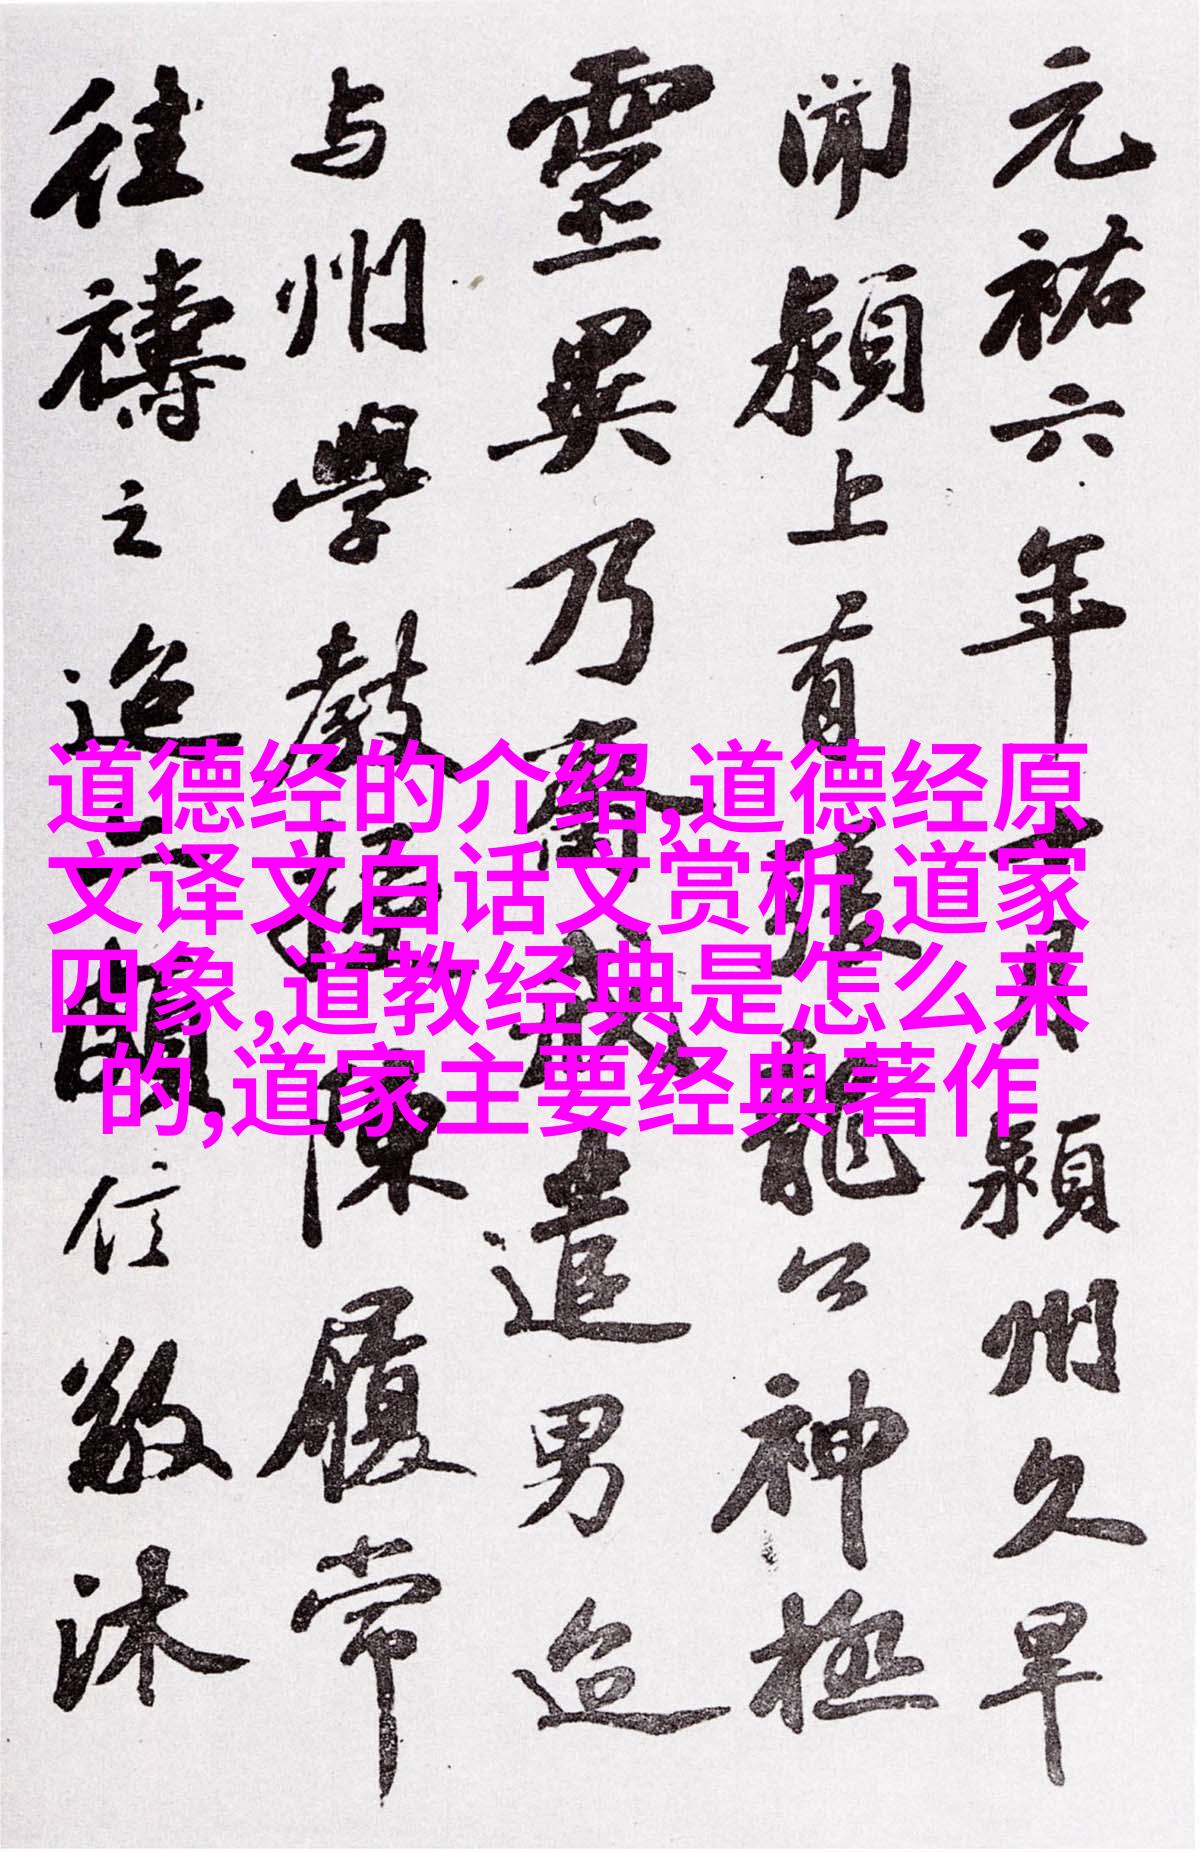 元祐六年十月潁州久旱
聞潁上有張龍公神極
靈異乃齋戒遣男迨
与州學教授陳履常
往禱之迨亦頗信敬沐
道德经的介绍,道德经原
文译文白话文赏析,道家
四象,道教经典是怎么来
的,道家主要经典著作